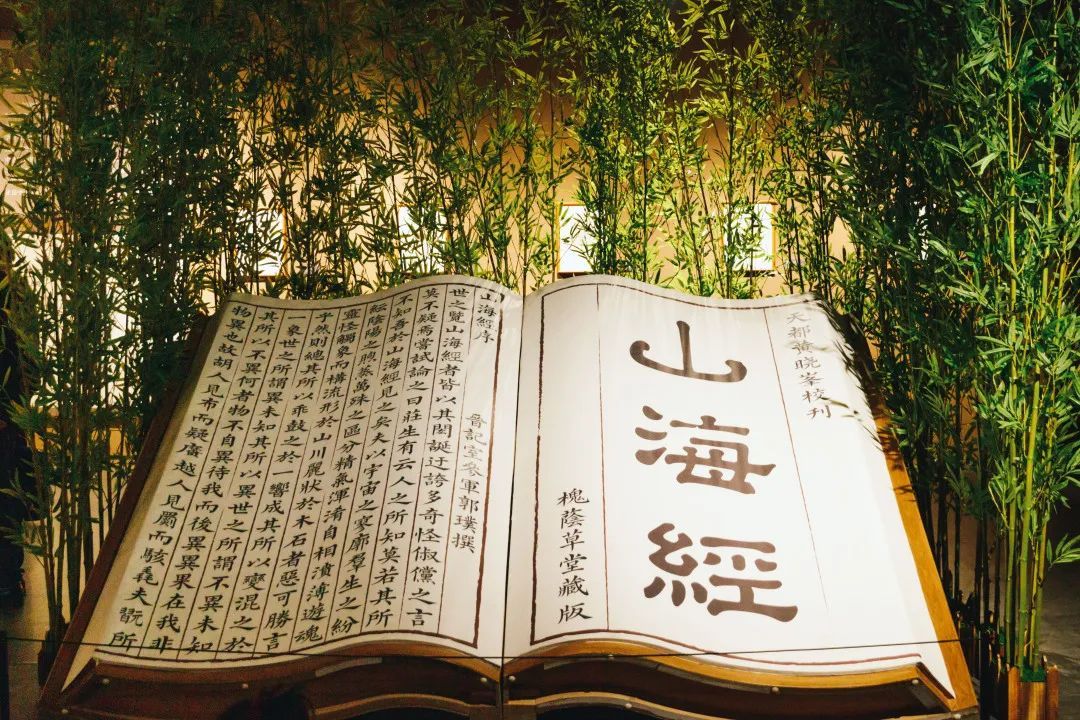 天都黄晓峯校刊
山海經
槐蔭草堂藏版
山海經序
晉記室參軍郭璞撰
世之覽山海經者皆以其閎誕迂誇多奇怪俶儻之言
莫不疑焉嘗試論之曰莊生有云人之所知莫若其所
不知吾於山海經見之矣夫以宇宙之寥廓羣生之紛
紜陰陽之煦蒸萬殊之區分精氣渾淆自相濆薄遊魂
靈怪觸象而構流形於山川麗狀於木石者惡可勝言
乎然則總其所以乖鼓之於一響成其所以變混之於
一象世之所謂異未知其所以異世之所謂不異未知
其所以不異何者物不自異待我而後異異果在我非
物異也故胡人見布而疑黂越人見罽而駭毳夫翫所